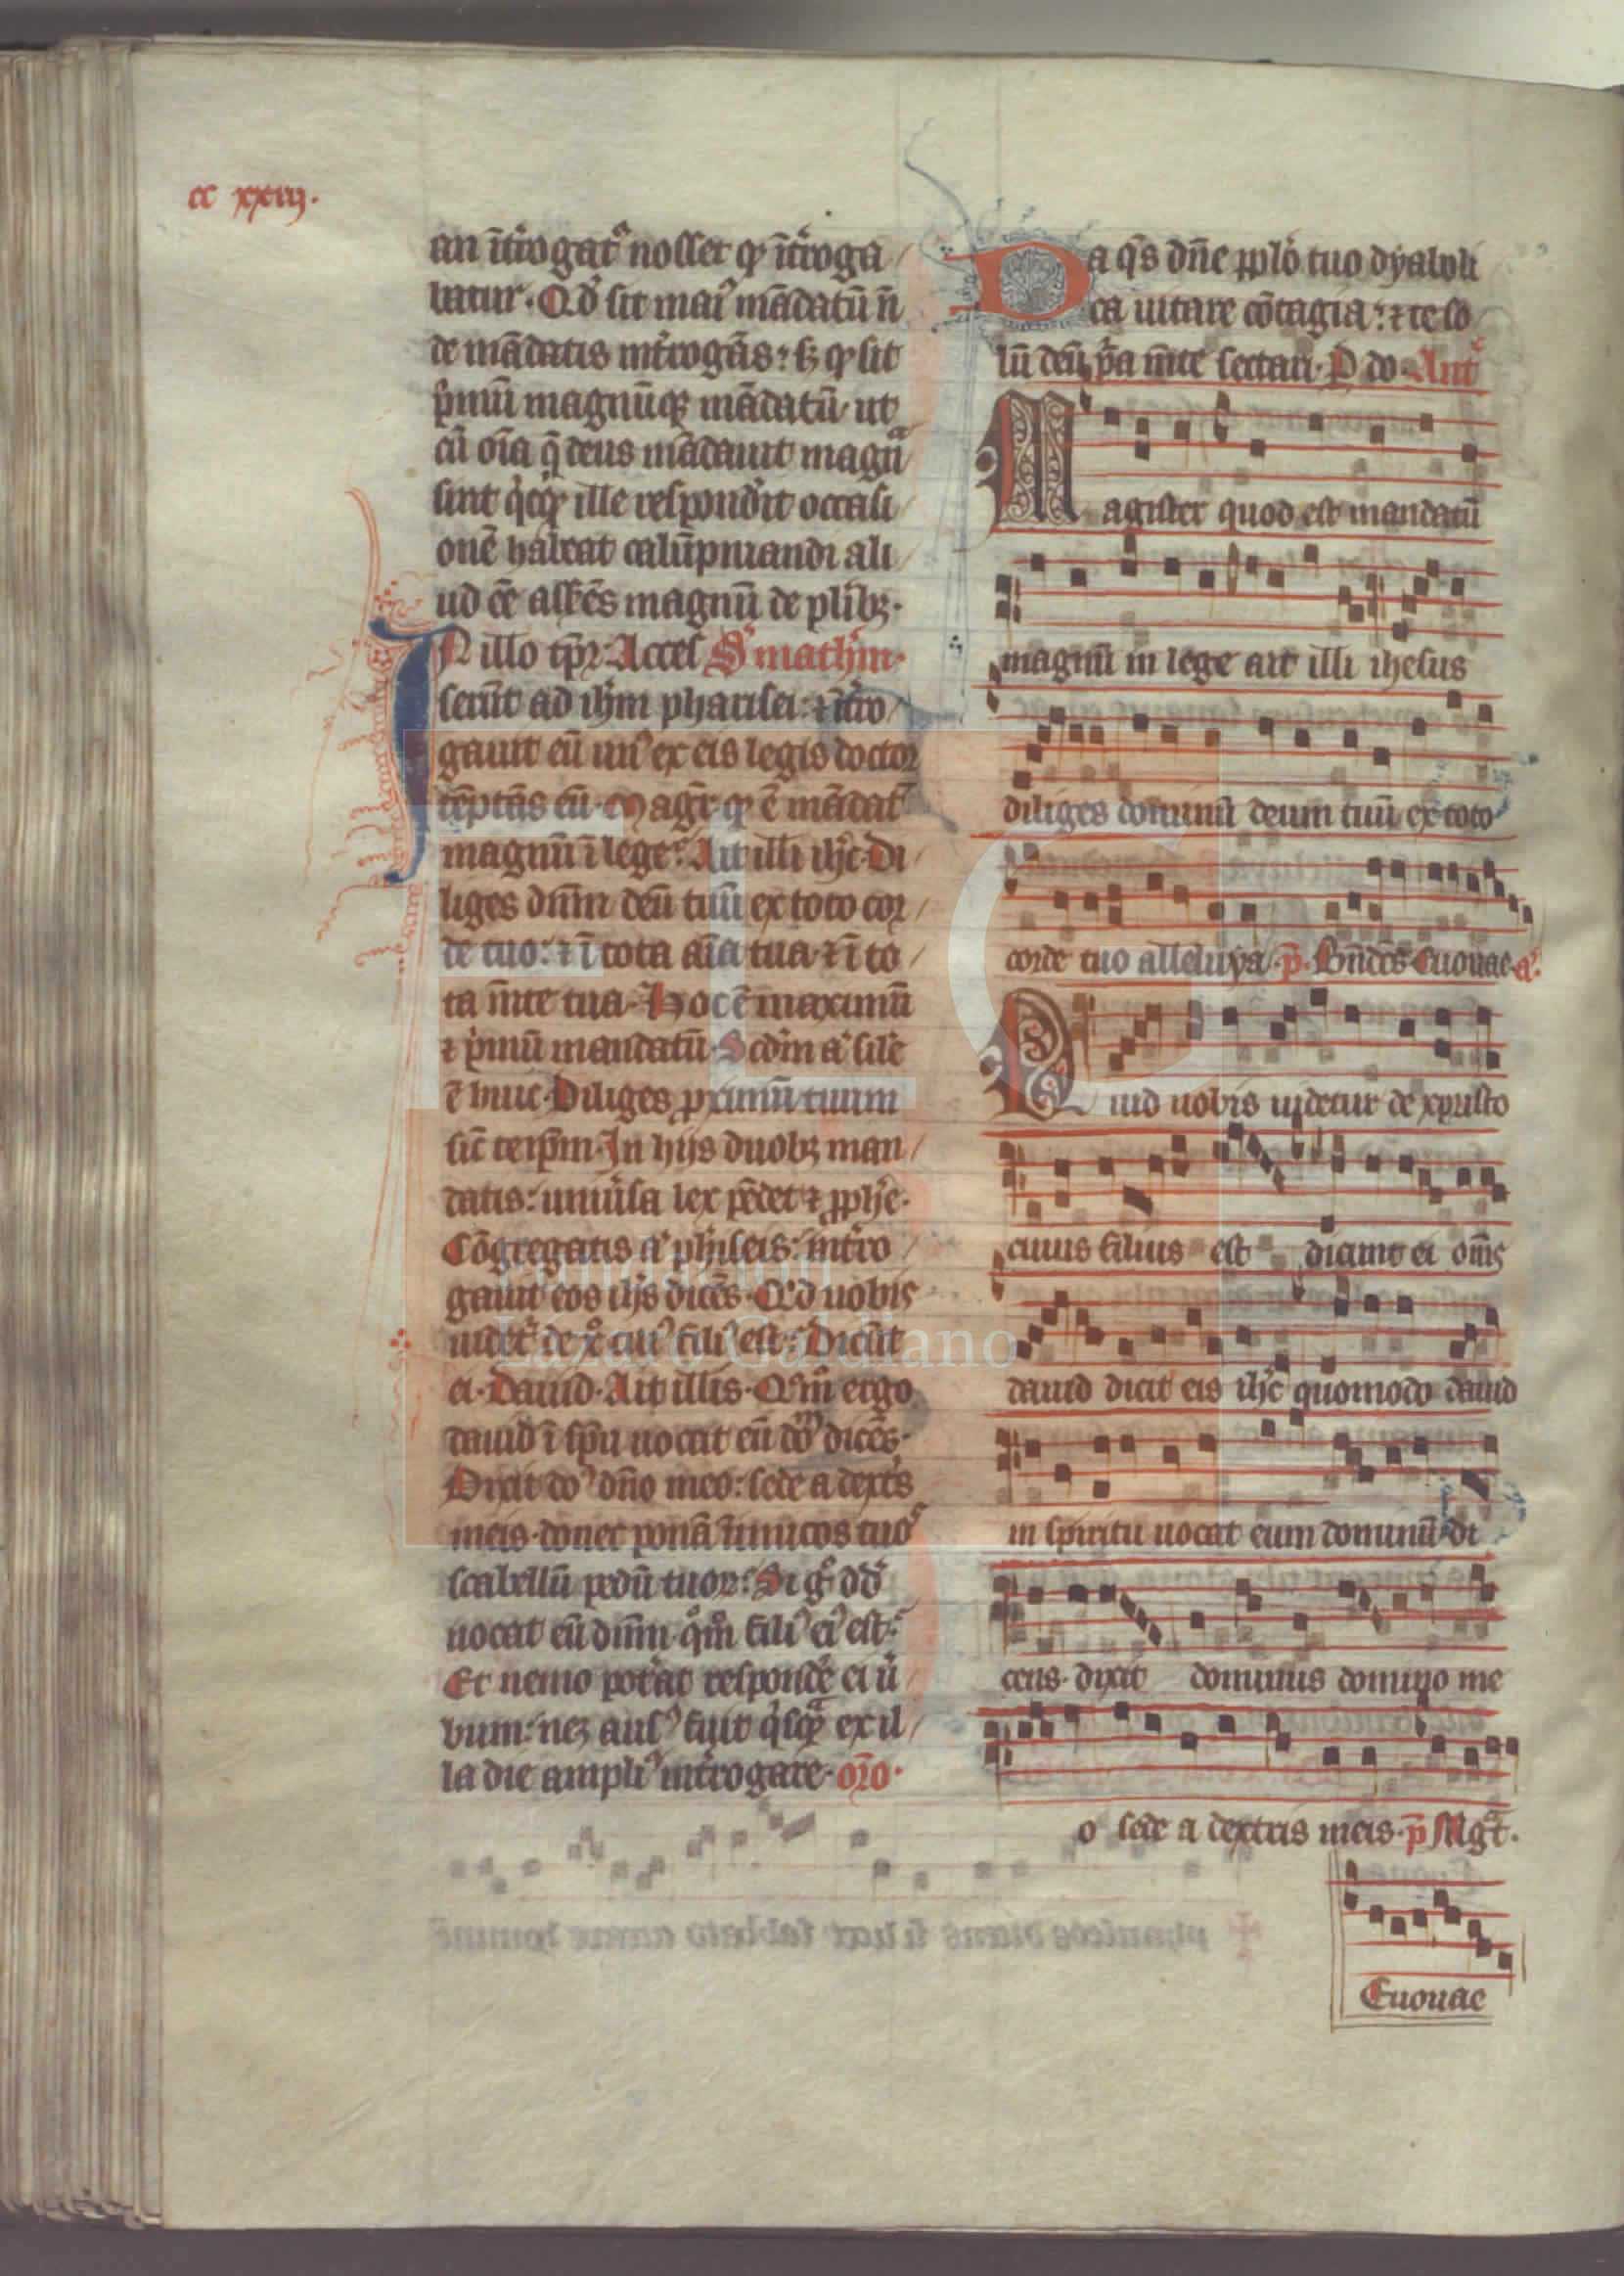 cc xxvij.
an īt̄rogat᷒ nosset q̶ īt̄roga
batur. Qd̓ sit mai᷒ mādatū n̄
de mādatis int̓rogās: sꝫ q̶ sit
p̓mū magnūqꝫ mādatū. ut
cū oīa q̄ deus mādauit magn̄
sint q̓cq̶ ille respond̓it occasi
onē habeat calūpniandi ali
ud eē asserēs magnū de plib̓ꝫ.
IN illo tp̄r. Acces S᷒ math̄m.
serūt ad ih̄m pharisei: ⁊ īt̓ro
gauit eū un᷒ ex eis legis doctor
tēptās eū. Mag̓r q̶ ē mādat᷒
magnū ī lege: Ait illi ih̄c. Di
liges dn̄m deū tuū ex toto cor
de tuo: ⁊ ī tota aīa tua. ⁊ ī to
ta m̄te tua. Hoc ē maximū
⁊ p̓mū mandatū. Scd̄m a᷒ sile
ē huic. Diliges ꝓximū tuum
sic̄ teip̄m. In hijs duobꝫ man
datis: uniu̓sa lex pēdet ⁊ ꝓph̄e.
Cōgregatis a᷒ ph̓iseis: int̓ro
gauit eos ih̄s dicēs. Q᷒d uobis
uidet᷒ de xͦ cui᷒ fili᷒ est: Dicūt
ei. Dauid. Ait illis. Qͦm̄ ergo
dauid ī sp̄u uocat eū dōm dicēs.
Dixit do᷒ dn̄o meo: sede a dext̓s
meis. donec ponā inimicos tuo᷒
scabellū pedū tuoꝝ: Si gͦ dd̓
uocat eū dn̄m. qͦm̊ fili᷒ ei᷒ est:
Et nemo pot̓at respondē ei u̓
bum: neꝫ aus᷒ fuit q̓sq̶ᵃ ex il
la die ampli᷒ int̓rogare. or̄o.
Da qs̄ dn̄e pplo̓ tuo dyaboli
ca uitare cōtagia: ⁊ te so
lū deū p᷒a m̄te sectari. P do. Ant᷒
Magister quod est mandatū
magnū in lege ait illi ihesus
diliges dominū deum tuū ex toto
corde tuo alleluya. p̄. Bn̄dc̄s. Euouae. a᷒.
Quid uobis uidetur de xpristo
cuius filius est dicunt ei om̄s
dauid dicit eis ih̄c quomodo dauid
in spiritu uocat eum dominū di
cens. dixit dominus domino me
o sede a dextris meis. p̄ Mgt̓.
Euouae
Lázaro Galdiano